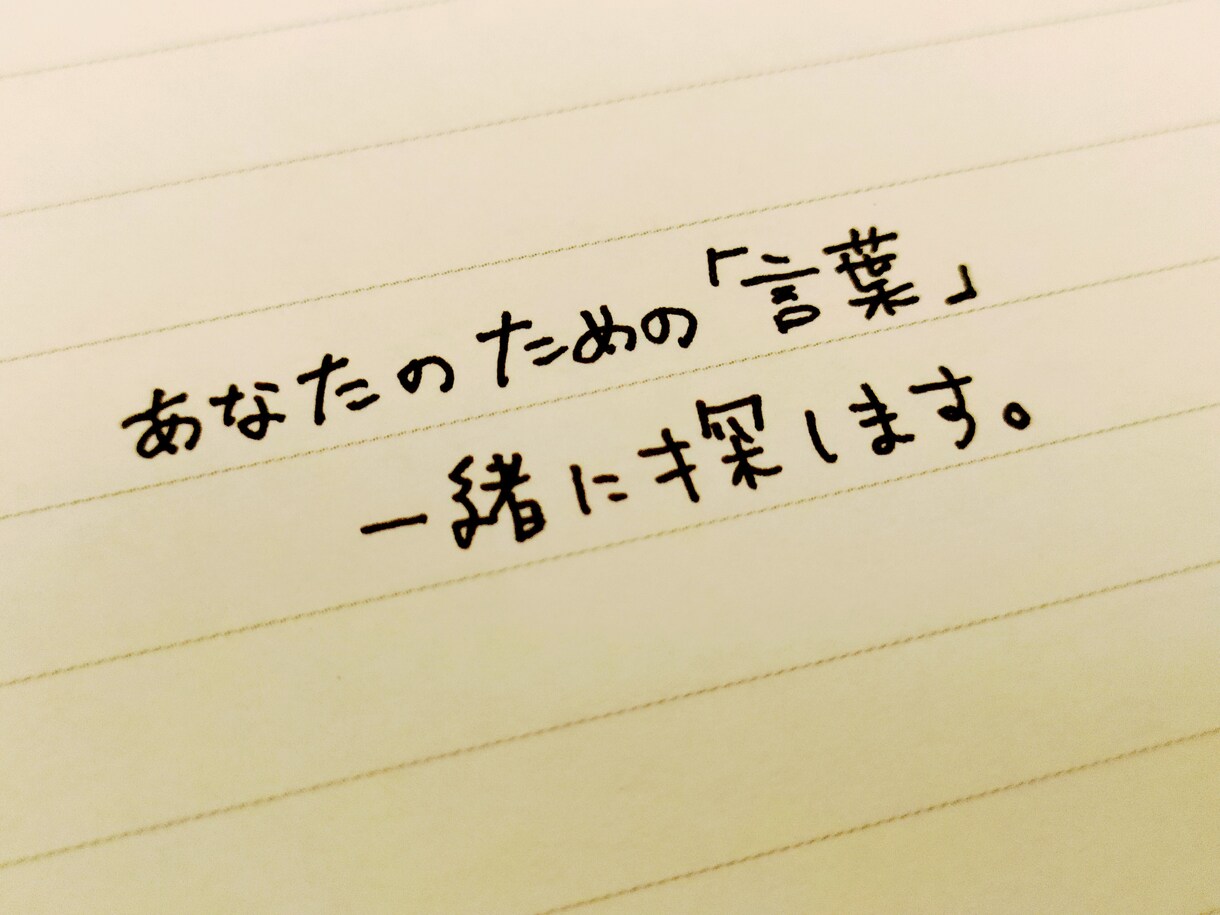 あなたのための「言葉」
一緒に探します。